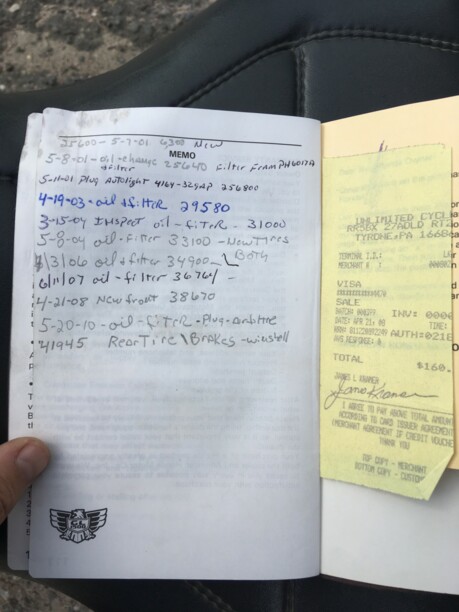 25600 - 5-7-01 6300 New
MEMO
5-8-01 - oil - change 25640 Filter Fram PH6017A
+ filter
5-11-01 Plug Autolight 4164 - 329AP 256800
4-19-03 - oil + filteR 29580
3-15-04 INspect oil - filteR - 31000
5-8-04 oil - Filter 33100 - New Tires
1/31/06 oil + filter 34900 - Both
6/11/07 oil - filter 36761 -
4-21-08 New front 38670
5-20-10 - oil - filteR - Plug - Airbthre
41945 Rear Tire \ Brakes -
UNLIMITED CYCL
RR5BX 27AOLD RT2
TYRONE, PA 1668
TERMINAL I.D.:
MERCHANT #:
VISA
SALE
BATCH: 000377 INV: 0000
DATE: APR 21, 08 TIME:
AUTH: 021E
AVS RESPONSE: 0
TOTAL $160.
JAMES L KRAMER
I AGREE TO PAY ABOVE TOTAL AMOUNT
ACCORDING TO CARD ISSUER AGREEMENT
(MERCHANT AGREEMENT IF CREDIT VOUCHE
THANK YOU
TOP COPY - MERCHANT
BOTTOM COPY - CUSTOM